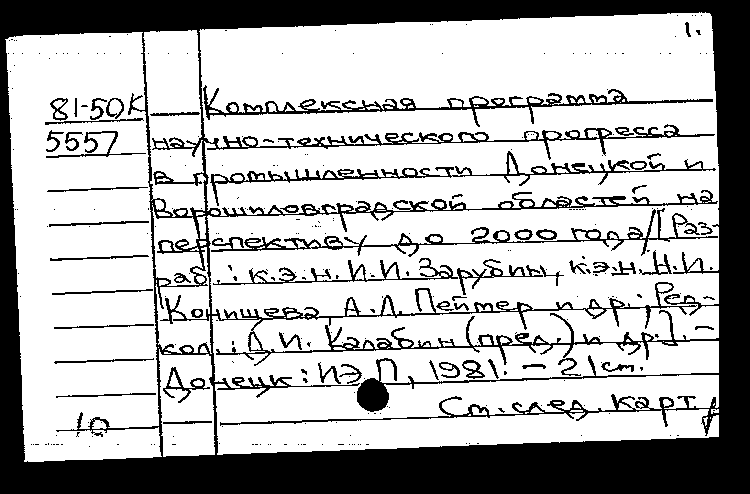 1.
81-50К Комплексная программа
5557 научно-технического прогресса
в промышленности Донецкой и
Ворошиловградской областей на
перспективу до 2000 года/[Раз-
раб.: к.э.н. И.И. Зарубин, к.э.н. Н.И.
Конищева, А.Л. Пейтер и др.; Ред-
кол.: Д.И. Калабин (пред.) и др.]. –
Донецк: ИЭП, 1981. – 21 ст.
10 См. след. карт.